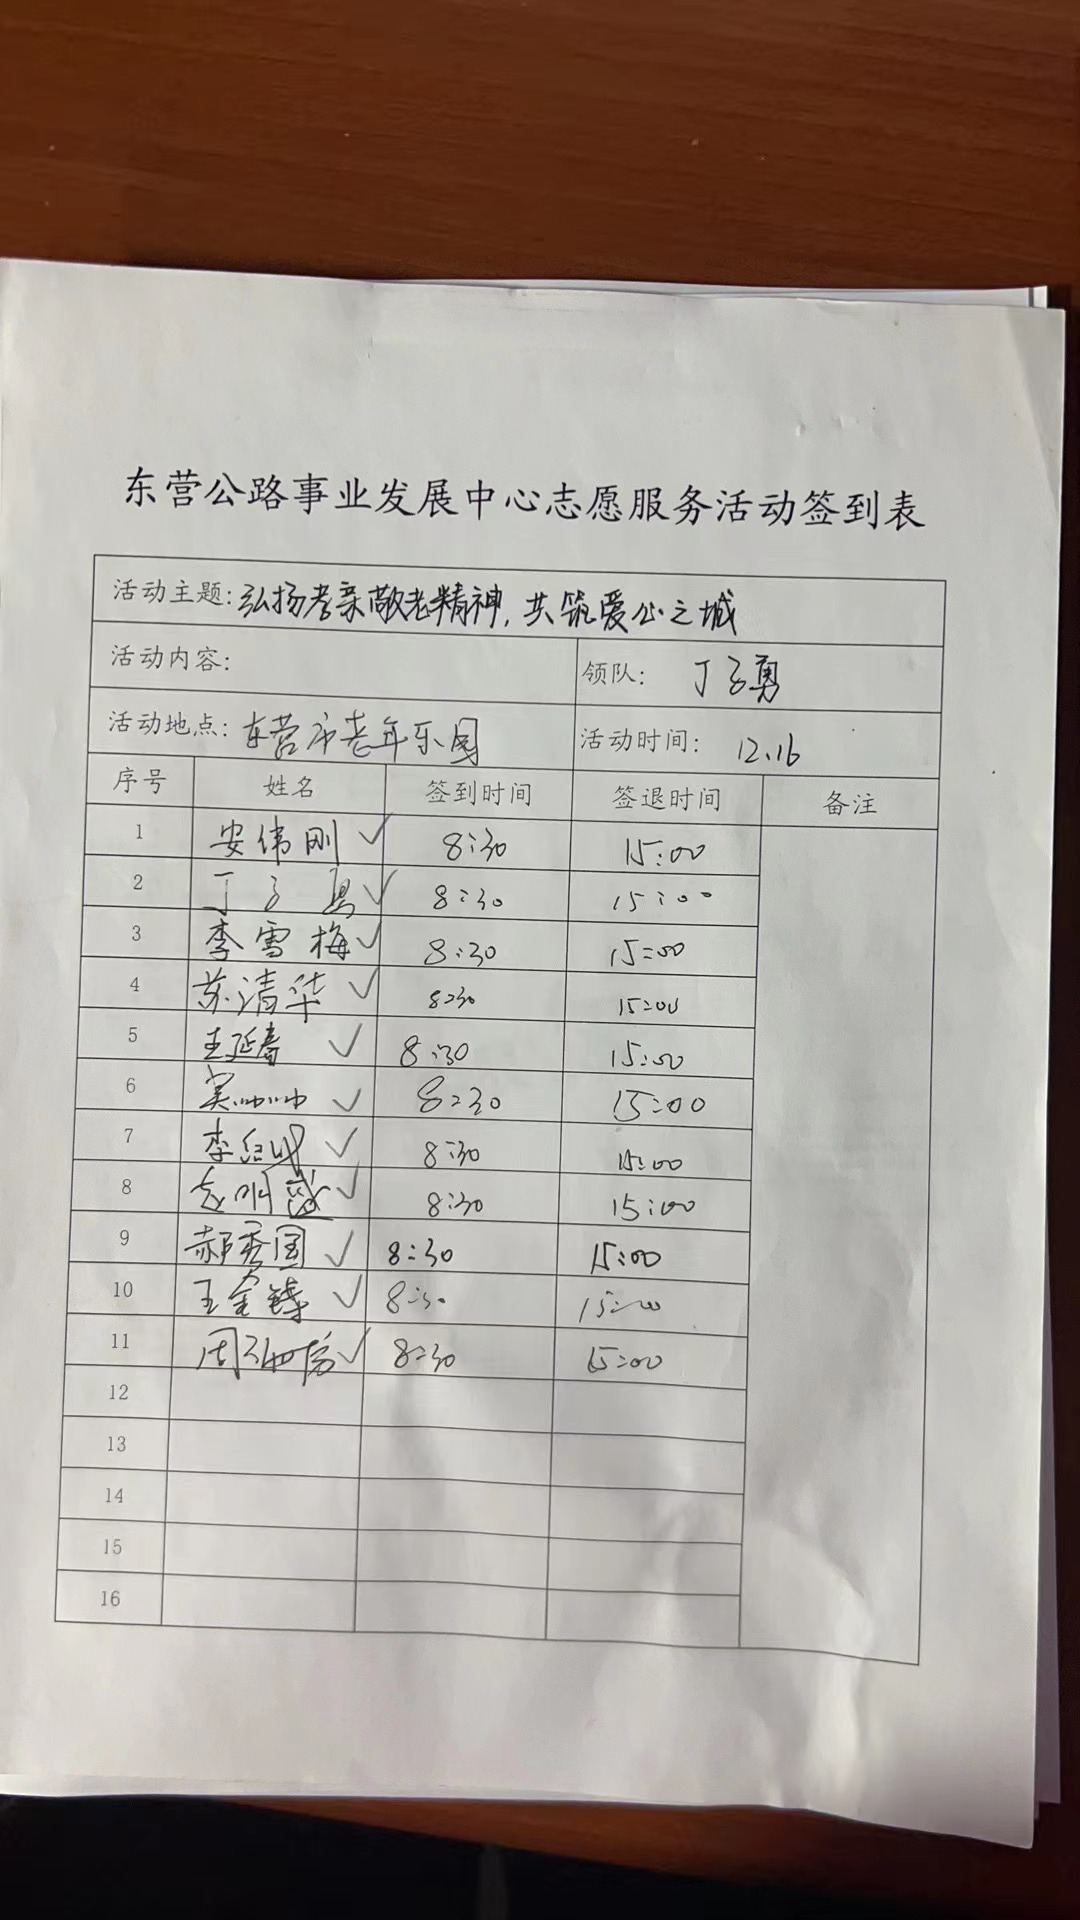 东营公路事业发展中心志愿服务活动签到表
活动主题:弘扬孝亲敬老精神,共筑爱心之城
活动内容:
领队: 丁子勇
活动地点:东营市老年乐园
活动时间: 12.16
序号 姓名 签到时间 签退时间 备注
1 安伟刚 ✓ 8:30 15:00
2 丁子勇 ✓ 8:30 15:00
3 李雪梅 ✓ 8:30 15:00
4 苏清华 ✓ 8:30 15:00
5 王延春 ✓ 8:30 15:00
6 吴帅帅 ✓ 8:30 15:00
7 李 ✓ 8:30 15:00
8 ✓ 8:30 15:00
9 郝秀国 ✓ 8:30 15:00
10 王金 ✓ 8:30 15:00
11 周 ✓ 8:30 15:00
12
13
14
15
16